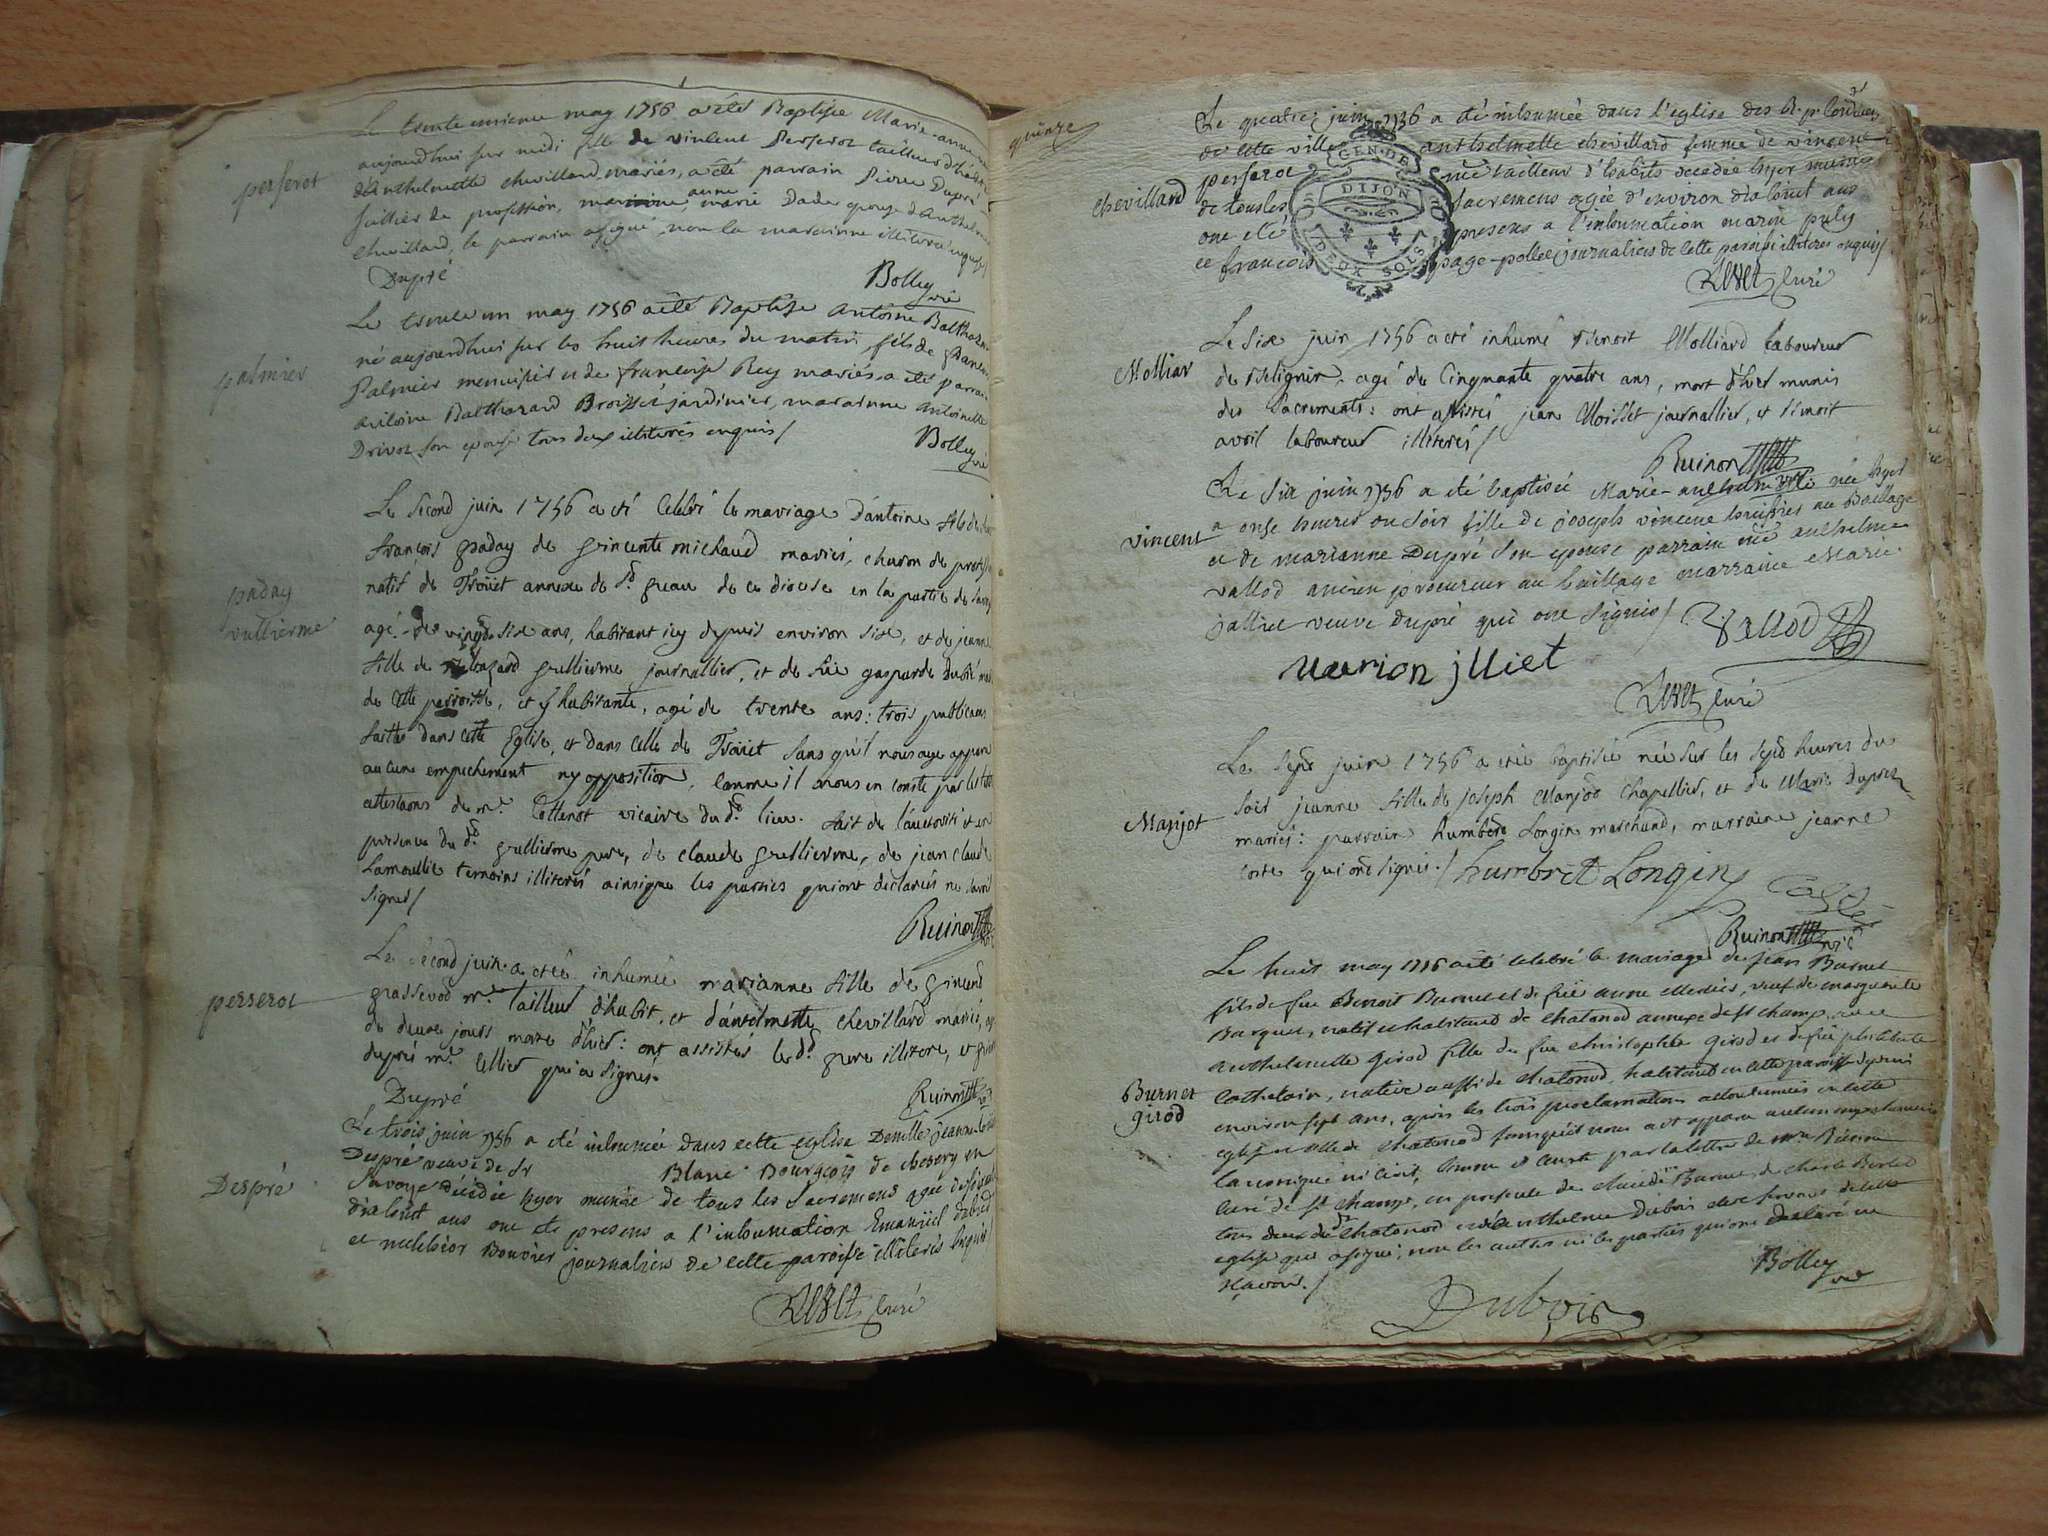 Le trente unieme may 1756 a été Baptisée Marie-anne née
perserot
aujourdhui sur midi fille de vincent Perserot tailleur d'habits
d'anthelmette chevillard mariés, a été parrain Pierre Dupré
sellier de profession, anne marie Dada epouse d'anthelme
chevillard, le parrain a signé, non la marainne illiterée enquise /
Dupré
Bolley vic
Le trente un may 1756 a été Baptisé antoine Balthazard
palmier
né aujourdhui sur les huit heures du matin, fils de
Palmier menuisier et de françoise Rey mariés, a été parrain
antoine Balthazard jardinier, marainne antoinette
Drivot son epouse tous deux illiterés enquis /
Bolley vic
Le second juin 1756 a eté Celebré le mariage D'antoine fils de
françois paday de michaud mariés, charon de
paday
vullierme
natif de annexe de de ce diocese en la partie de
agé de vingt six ans, habitant icy depuis environ six, et de jeanne
fille de vullierme journallier, et de feüe gasparde
de cette parroisse, et y habitante, agé de trente ans: trois publications
faittes dans cette Eglise, et dans celle de sans qu'il nous aye apparu
aucun empechement ny opposition, comme il nous en conste par les
attestaons de mr. Collenot vicaire du d. lieu. fait de l'autorité et en
presence du d. vullierme pere, de claude vullierme, de jean claude
Lamoullie temoins illiterés ainsique les parties qui ont declarés ne scavoir
signer /
Ruinon
Le second juin a eté inhumée marianne fille de
perserot
mr. tailleur d'habit, et d'antelmette chevillard mariés, agée
de deux jours morte d'hier: ont assistés le d. pere illitere, et
dupré mr. sellier qui a signé.
Dupré
Ruinon
Le trois juin 1756 a été inhumée dans cette eglise Demlle jeanne
Despré
Despré veuve de Sr Blanc Bourgeois de chesery en
Savoye décédée hyer munie de tous les Sacremens agée de
dixhuit ans ont été presens a l'inhumation Emanuel
et melchior Bouvier journaliers de cette paroisse illiterés enquis /
curé
quinze
Le quatre juin 1756 a été inhumée dans l'eglise des R. p.
de cette ville anthelmette chevillard femme de vincent
chevillard
perserot me tailleur d'habits decedée hyer munie
de tous les sacremens agée d'environ dix huit ans
ont été presens a l'inhumation
et francois page journaliers de cette paroisse illiteres enquis /
GEN. DE
DIJON
DEUX SOLS
curé
Le six juin 1756 a eté inhumé Benoit Molliard laboureur
Molliar
de agé de Cinquante quatre ans, mort d'hier munis
des Sacrements: ont assistés jean journallier, et Benoit
avril laboureur illiterés /
Ruinon
Le six juin 1756 a été baptisée Marie-anthelmette née hyer
vincent
a onse heures du soir fille de joseph vincent huissier au Baillage
et de marianne Dupré son epouse parrain me anthelme
vallod ancien procureur au baillage marraine Marie
jalliet veuve dupré qui ont signés /
Vallod
marion jlliet
curé
Le sept juin 1756 a eté baptisée née sur les sept heures du
Manjot
soir jeanne fille de joseph Manjot Chapellier, et de Marie Dupré
mariés: parrain humbert Longin marchand, marraine jeanne
coste qui ont signés. /
humbret Longin
Coste
Ruinon vic
Le huit may 1756 a été celebré le mariage de jean Burnet
fils de feu Benoit Burnet et de feüe anne, veuf de marguerite
natif et habitant de chatonod annexe de St champ, avec
anthelmette Girod fille de feu christophle Girod et de feüe philiberte
Burnet
girod
Cathelain, native aussi de chatonod, habitant en cette paroisse depuis
environ sept ans, après les trois proclamations accoutumées en cette
eglise et celle de chatonod sans qu'il nous a apparu aucun empechement
canonique ni civil, comme il conste par la lettre de
curé de St champ, en presence de claude Burnet, de charle
tous deux du d. chatonod et d'anthelme Dubois clerc de cette
eglise qui a signé, non les autres ni les parties qui ont declaré ne
scavoir. /
Bolley vic
Dubois